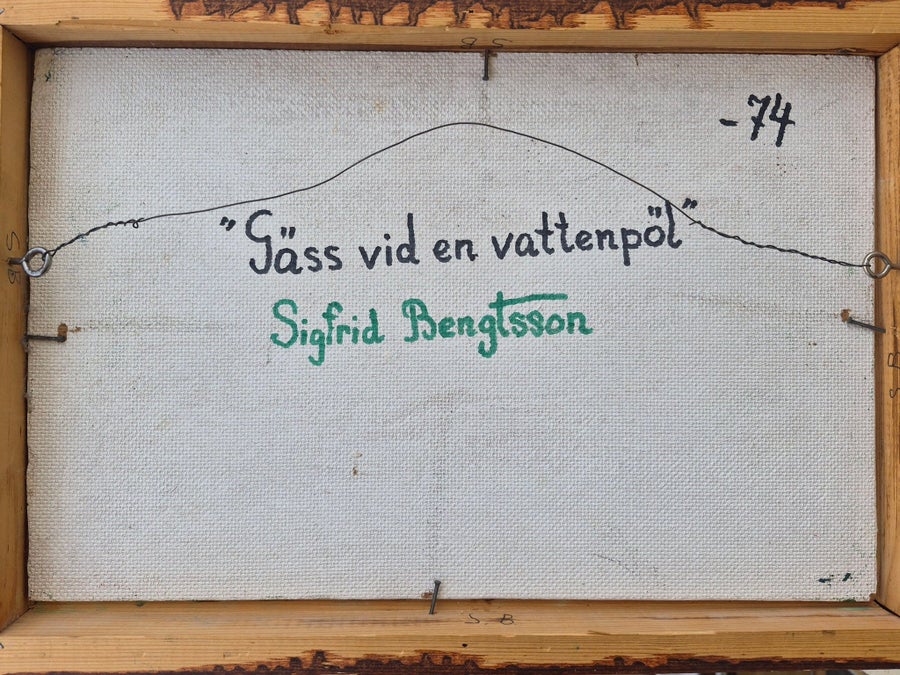 S.B
-74
"Gäss vid en vattenpöl"
Sigfrid Bengtsson
S.B
S.B
S.B